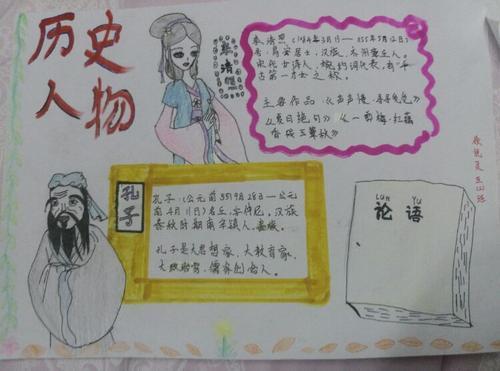 历史
人物
李清照
李清照(1084年3月13—1155年5月12日)
号:易安居士,汉族,
宋代女词人,婉约词代表,有"千
古第一才女之称。
主要作品:《声声慢·寻寻觅觅》
《夏日绝句》《一剪梅·红藕
香残玉簟秋》
孔子
孔子:(公元前551 9月28日—公元
前4月11日)名丘,字仲尼,汉族
春秋时期
孔子是大思想家,大教育家,
大政治家,儒家创始人。
Lun Yu
论 语